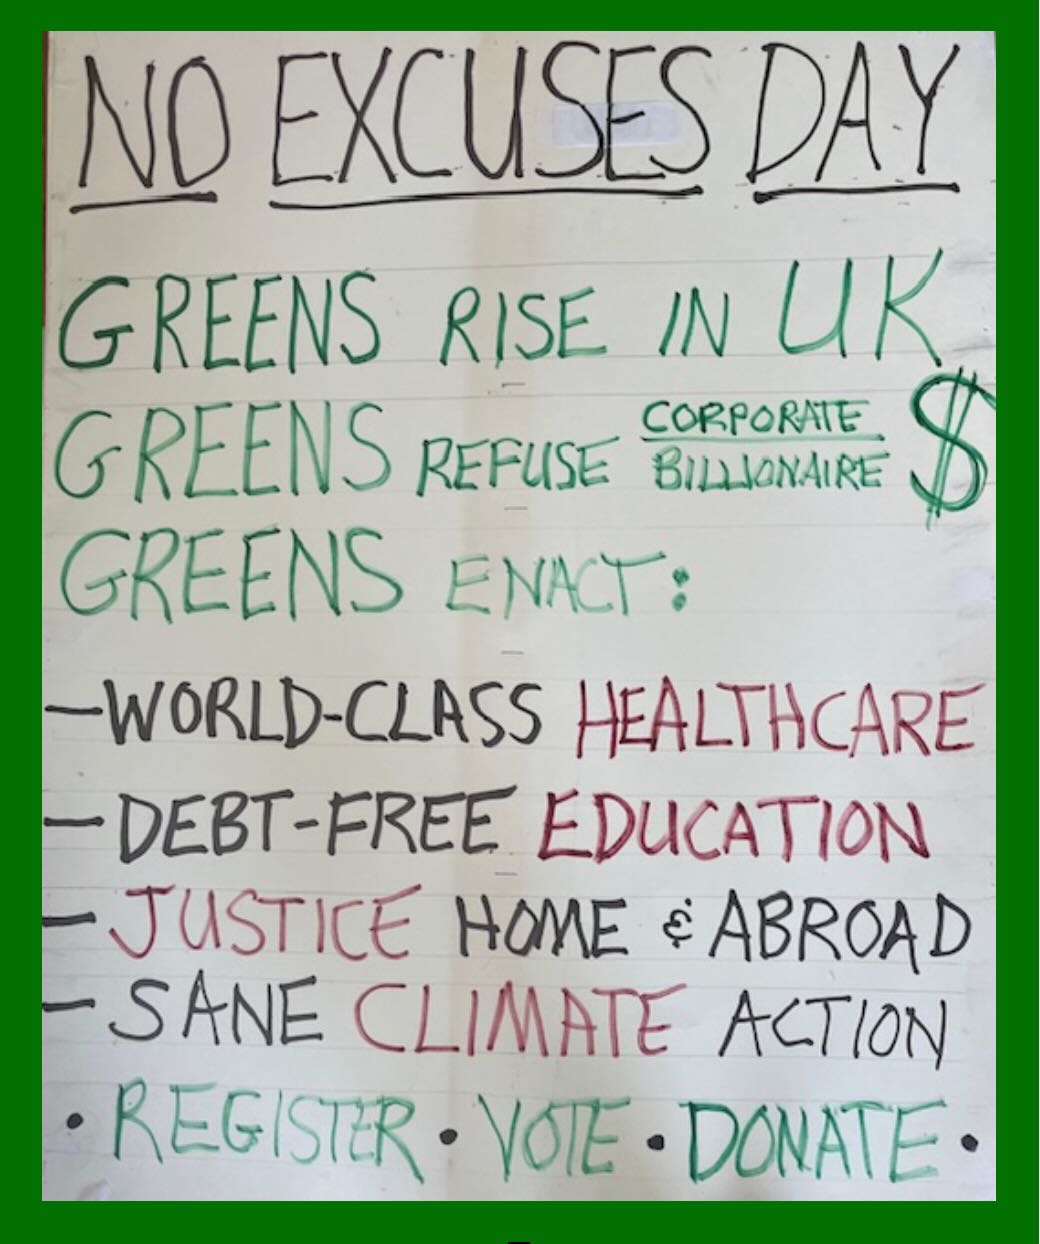 NO EXCUSES DAY
GREENS RISE IN UK
GREENS REFUSE CORPORATE BILLIONAIRE $
GREENS ENACT:
—WORLD-CLASS HEALTHCARE
—DEBT-FREE EDUCATION
—JUSTICE HOME & ABROAD
—SANE CLIMATE ACTION
• REGISTER • VOTE • DONATE •